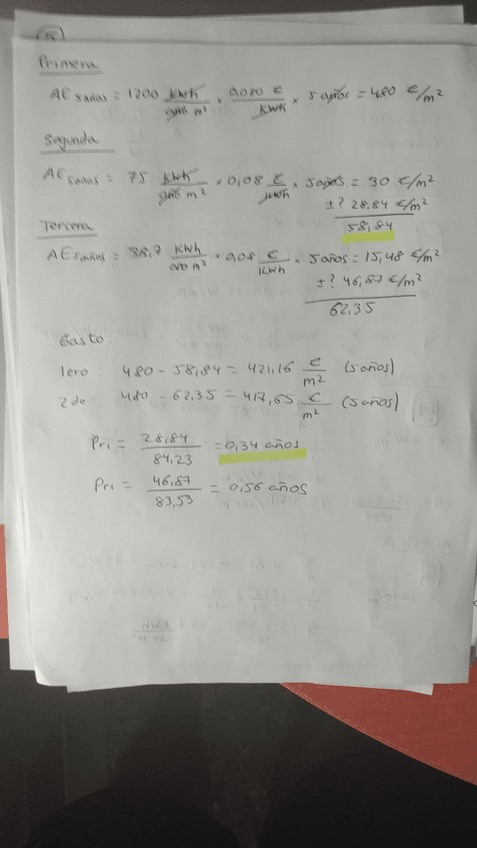 Primera
AE 5años = 1200 KWh/año m² × 0,080 €/KWh × 5 años = 480 €/m²
Segunda
AE 5años = 75 KWh/año m² × 0,08 €/KWh × 5 años = 30 €/m²
±? 28,84 €/m²
58,84
Tercera
AE 5años = 38,7 KWh/año m² × 0,08 €/KWh × 5 años = 15,48 €/m²
±? 46,87 €/m²
62,35
Gasto:
1ero: 480 - 58,84 = 421,16 €/m² (5 años)
2do: 480 - 62,35 = 417,65 €/m² (5 años)
Pri = 28,84/84,23 = 0,34 años
Pri = 46,87/83,53 = 0,56 años